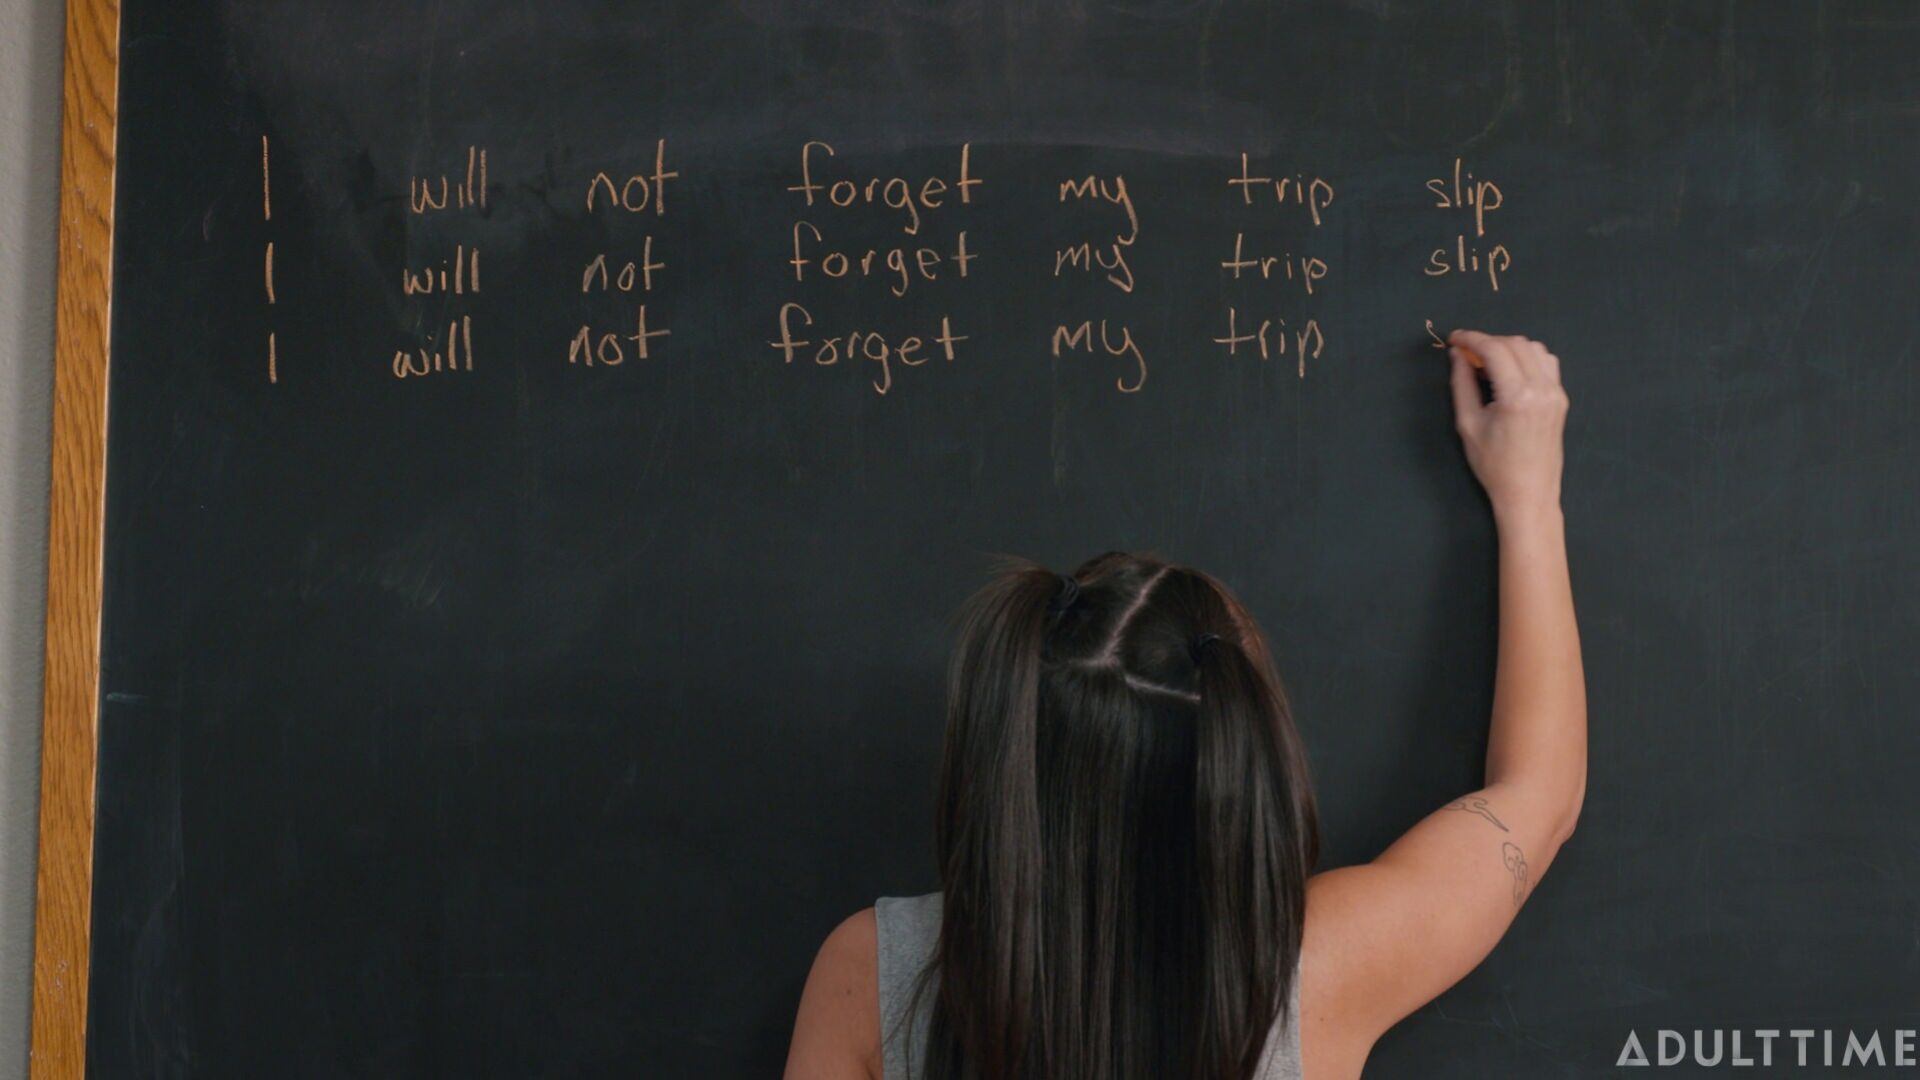 I will not forget my trip slip
I will not forget my trip slip
I will not forget my trip s
ADULTTIME